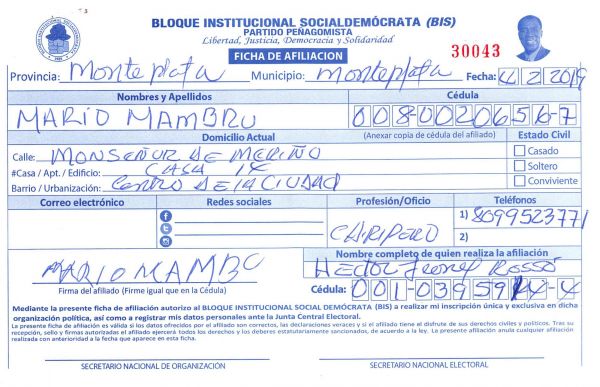 BLOQUE INSTITUCIONAL SOCIALDEMÓCRATA (BIS)
PARTIDO PEÑAGOMISTA
Libertad, Justicia, Democracia y Solidaridad
FICHA DE AFILIACION
30043
Provincia: Monte plata Municipio: monteplata Fecha: 4/2/2019
Nombres y Apellidos
Cédula
MARIO MAMBRU
008-0020656-7
Domicilio Actual
(Anexar copia de cédula del afiliado)
Estado Civil
Calle: MONSEÑUR DE MERIÑO
Casado
#Casa / Apt. / Edificio: CASA 14
Soltero
Barrio / Urbanización: Centro DE LA CIUDAD
Conviviente
Correo electrónico
Redes sociales
Profesión/Oficio
Teléfonos
CHIRIPERO
1) 8099523771
2)
Nombre completo de quien realiza la afiliación
MARIO MAMBO
Hector Leonel Rosso
Firma del afiliado (Firme igual que en la Cédula)
Cédula: 001-0395914-4
Mediante la presente ficha de afiliación autorizo al BLOQUE INSTITUCIONAL SOCIAL DEMÓCRATA (BIS) a realizar mi inscripción única y exclusiva en dicha
organización política, así como a registrar mis datos personales ante la Junta Central Electoral.
La presente ficha de afiliación es válida si los datos ofrecidos por el afiliado son correctos, las declaraciones veraces y si el afiliado tiene el disfrute de sus derechos civiles y políticos. Tras su
recepción, sello y firmas autorizadas el afiliado ejercerá todos los derechos y los deberes estatutariamente sancionados, de acuerdo a la ley. La presente afiliación anula cualquier afiliación
realizada con anterioridad a la fecha que aparece en esta ficha.
SECRETARIO NACIONAL DE ORGANIZACIÓN
SECRETARIO NACIONAL ELECTORAL